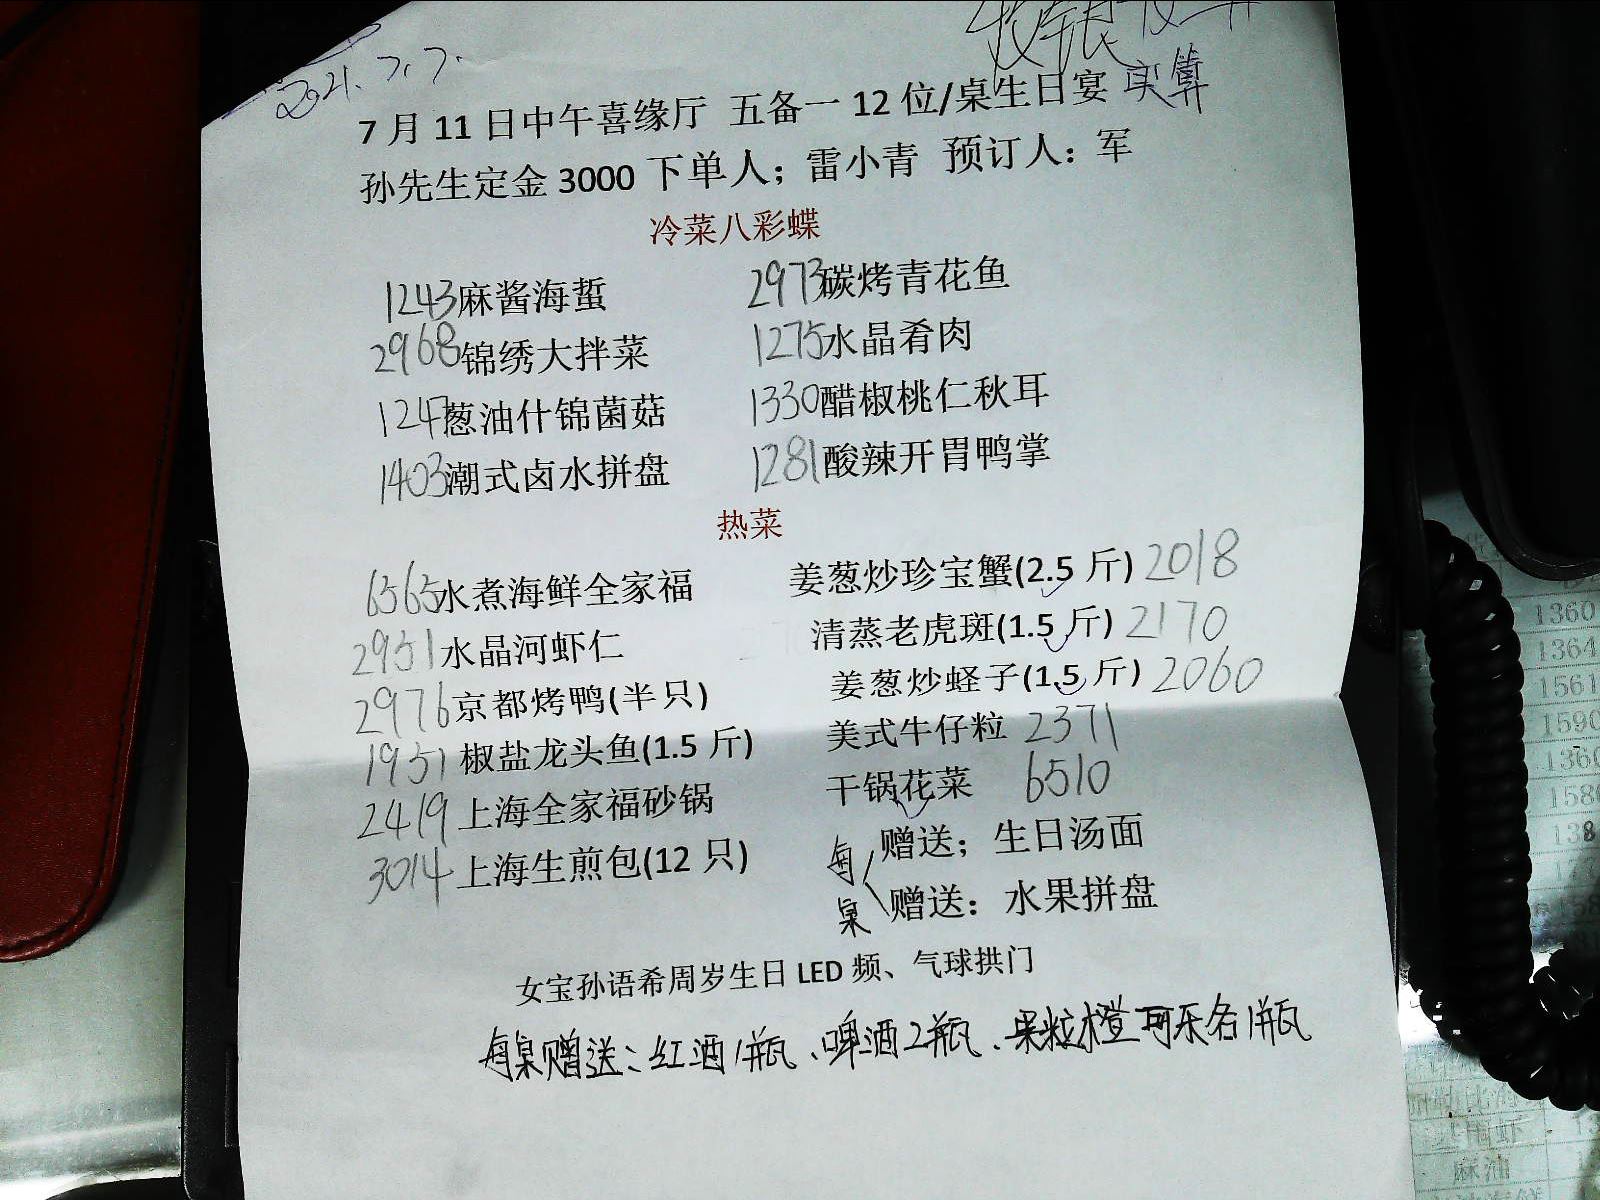 2021.7.7.
7月11日中午喜缘厅 五备一12位/桌生日宴 实算
孙先生定金3000下单人；雷小青 预订人：军
冷菜八彩蝶
1243麻酱海蜇 2973碳烤青花鱼
2968锦绣大拌菜 1275水晶肴肉
1247葱油什锦菌菇 1330醋椒桃仁秋耳
1403潮式卤水拼盘 1281酸辣开胃鸭掌
热菜
6565水煮海鲜全家福 姜葱炒珍宝蟹(2.5斤) 2018
2951水晶河虾仁 清蒸老虎斑(1.5斤) 2170
2976京都烤鸭(半只) 姜葱炒蛏子(1.5斤) 2060
1951椒盐龙头鱼(1.5斤) 美式牛仔粒 2371
2419上海全家福砂锅 干锅花菜 6510
3014上海生煎包(12只) 每桌 赠送；生日汤面
赠送：水果拼盘
女宝孙语希周岁生日LED频、气球拱门
每桌赠送：红酒1瓶、啤酒2瓶、果粒橙可乐各1瓶
1360
1364
1561
1590
1360
1580
138
麻油